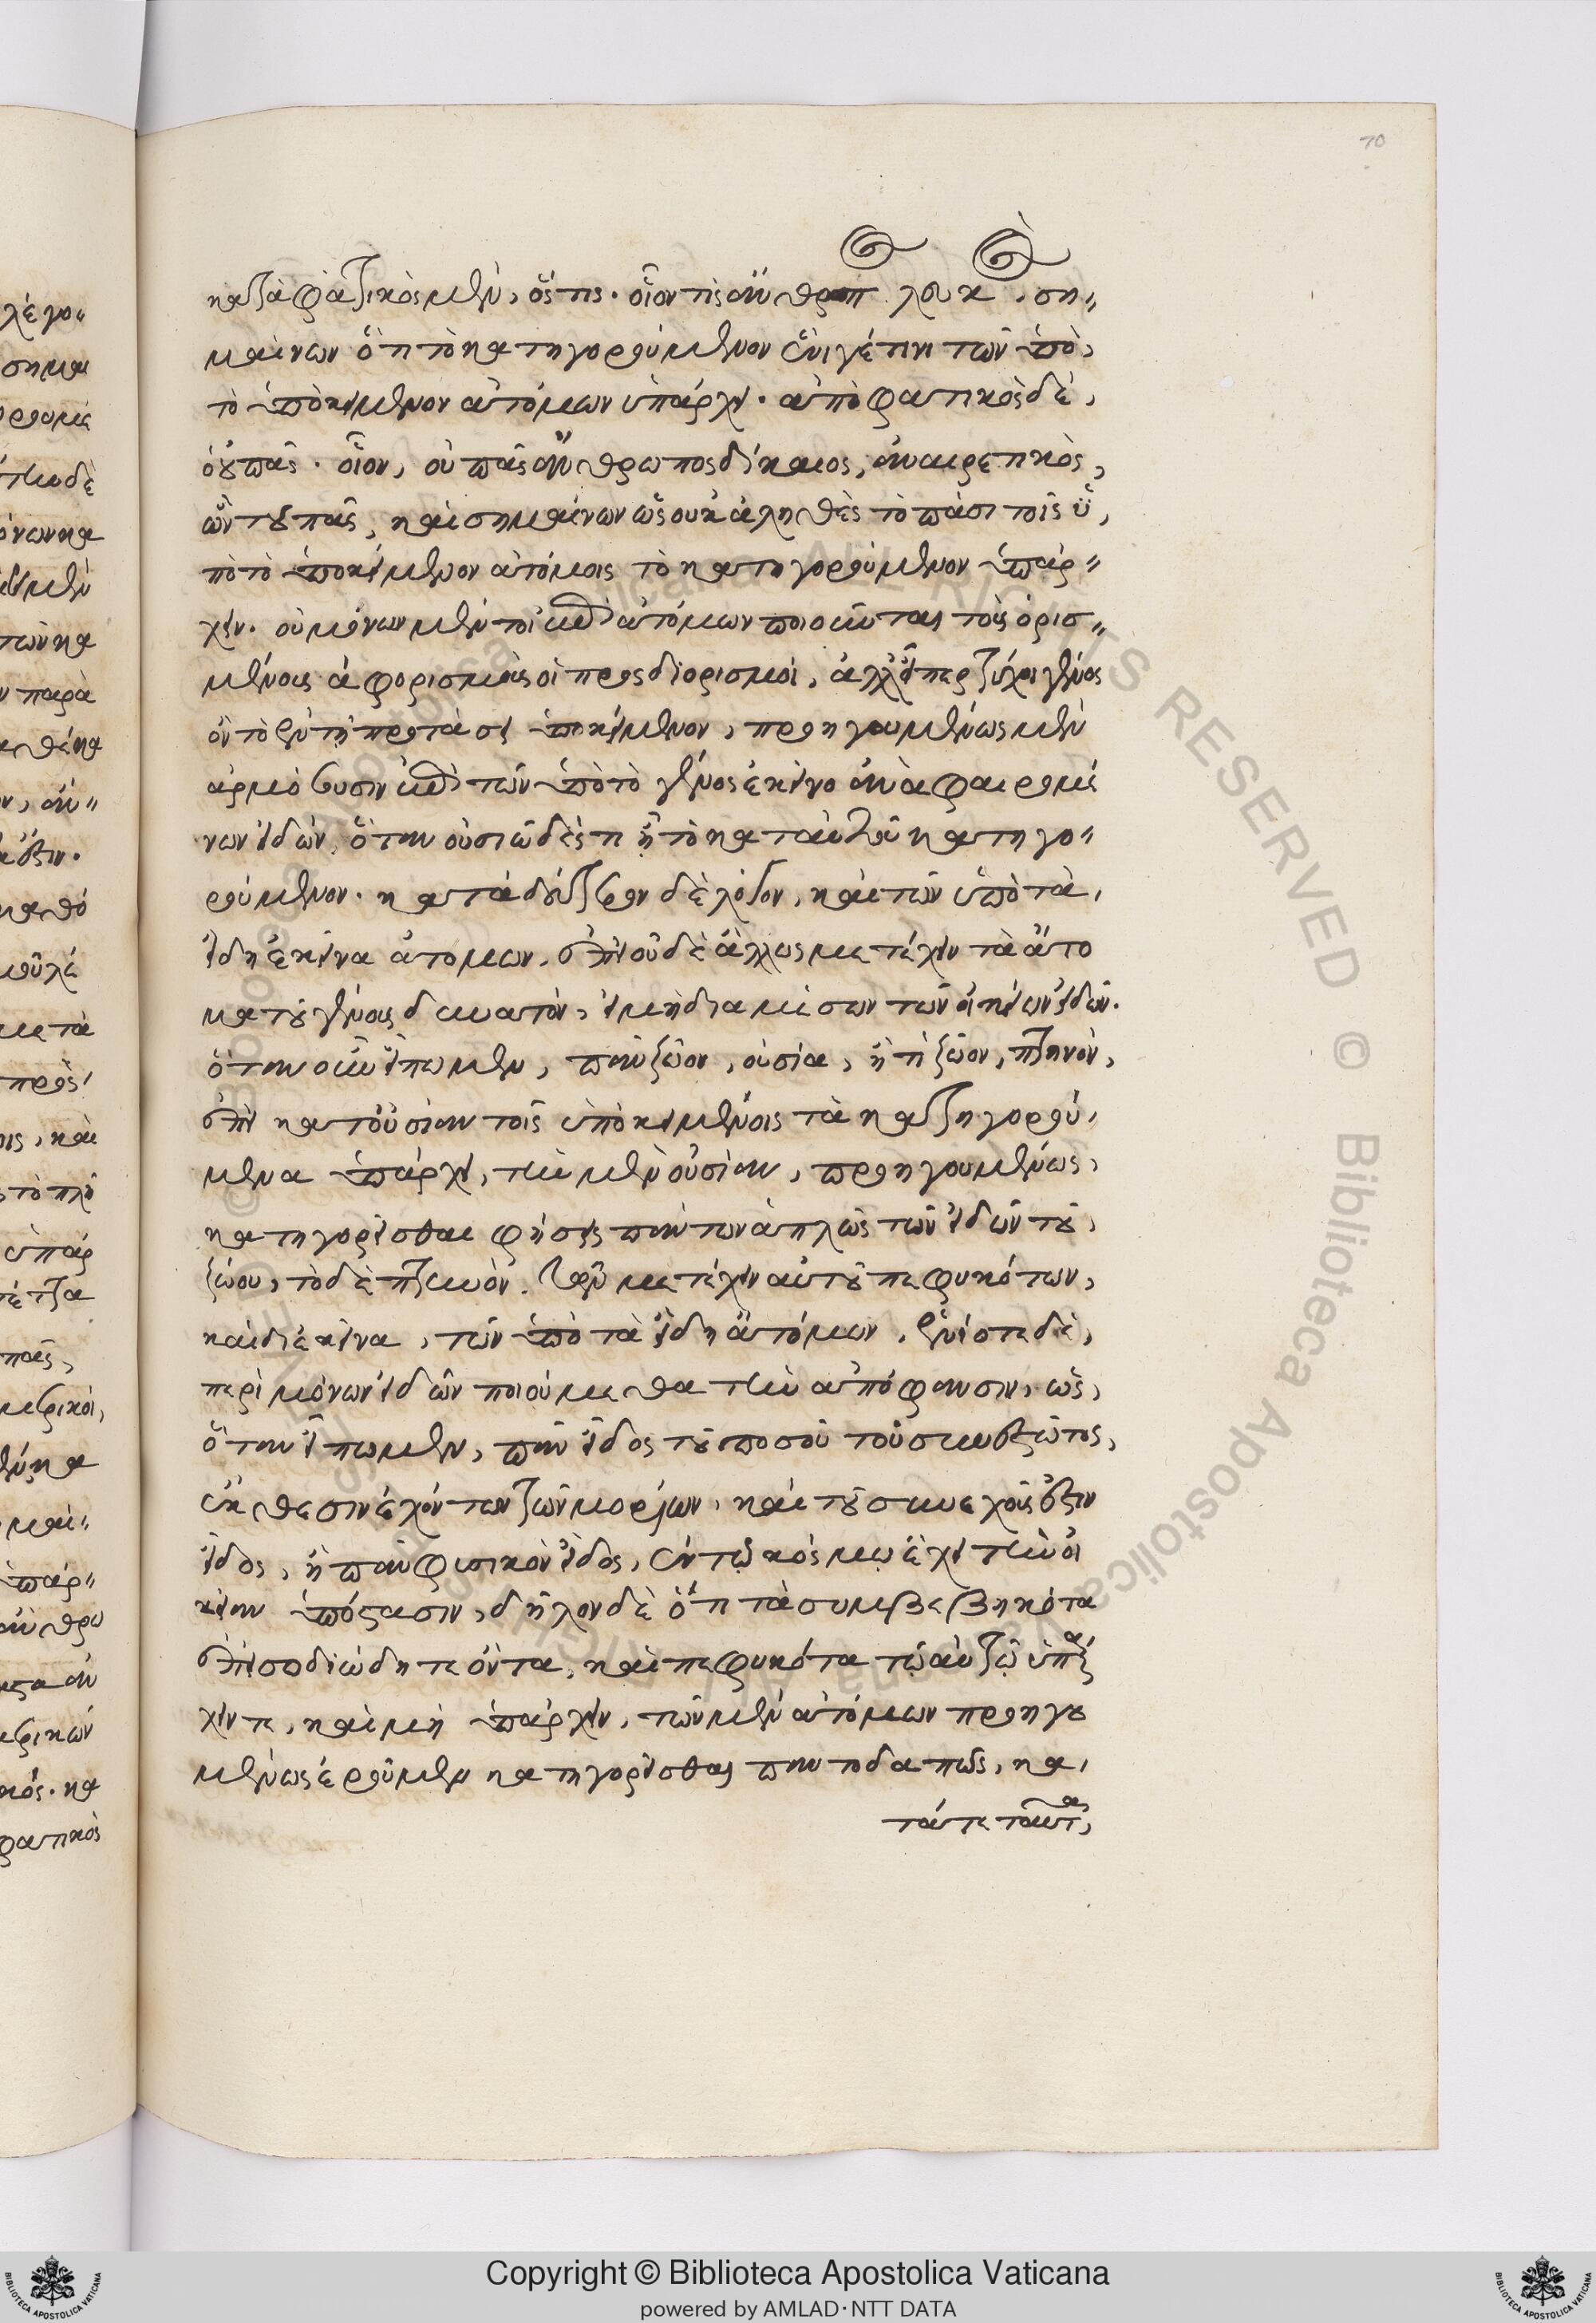 70
καταφατικὸς μὲν, ὅς τις. οἷον τὶς ἄνθρωπ λευκ, ση"
μαίνων ὅτι τὸ κατηγορούμενον ἑνί γέ τινι τῶν ὑπὸ,
τὸ ὑποκείμενον ἀτόμων ὑπάρχει. ἀποφατικὸς δὲ,
ὁ οὐ πᾶς. οἷον, οὐ πᾶς ἄνθρωπος δίκαιος, ἀναιρετικὸς,
ὢν τοῦ πᾶς, καὶ σημαίνων ὡς οὐκ ἀληθὲς τὸ πᾶσι τοῖς ὑ,
πὸ τὸ ὑποκείμενον ἀτόμοις τὸ κατηγορούμενον ὑπάρ"
χειν. οὐ μόνων μέντοι τῶν ἀτόμων ποιοῦνται τοὺς ὁρισ"
μένους ἀφορισμοὺς οἱ προσδιορισμοὶ, ἀλλ' εἴπερ τύχοι γένος
ὂν τὸ ἐν τῇ προτάσει ὑποκείμενον, προηγουμένως μὲν
ἁρμόσουσιν ἐπὶ τῶν ὑπὸ τὸ γένος ἐκεῖνο ἀναφαιρομέ
νων εἰδῶν, ὅταν οὐσιῶδές τι ᾖ τὸ κατ' αὐτοῦ κατηγο"
ρούμενον. κατὰ δεύτερον δὲ λόγον, καὶ τῶν ὑπὸ τὰ,
εἴδη ἐκεῖνα ἀτόμων. ἐπεὶ οὐδὲ ἄλλως μετέχειν τὰ ἄτο
μα τοῦ γένους δυνατὸν, εἰ μὴ διὰ μέσων τῶν οἰκείων εἰδῶν.
ὅταν οὖν εἴπωμεν, πᾶν ζῶον, οὐσία, ἢ τὶ ζῶον, πτηνὸν,
ἐπεὶ κατ' οὐσίαν τοῖς ὑποκειμένοις τὰ κατηγορού,
μενα ὑπάρχει, τὴν μὲν οὐσίαν, προηγουμένως,
κατηγορεῖσθαι φήσεις πάντων ἁπλῶς τῶν εἰδῶν τοῦ,
ζώου, τὸ δὲ πτηνὸν. τῶν μετέχειν αὐτοῦ πεφυκότων,
καὶ δι' ἐκεῖνα, τῶν ὑπὸ τὰ εἴδη ἀτόμων. ἐνίοτε δὲ,
περὶ μόνων εἰδῶν ποιούμεθα τὴν ἀπόφανσιν, ὡς,
ὅταν εἴπωμεν, πᾶν εἶδος τοῦ ποσοῦ τοῦ συνεστῶτος,
ἐκ θέσιν ἐχόντων τῶν μορίων, καὶ τοῦ συνεχοῦς ἐστιν
εἶδος, ἢ πᾶν φυσικὸν εἶδος, ἐν τῷ κόσμῳ ἔχει τὴν οἰ
κείαν ὑπόστασιν, δῆλον δὲ ὅτι τὰ συμβεβηκότα
ἐπεισοδιώδη τε ὄντα, καὶ πεφυκότα τῷ αὐτῷ ὑπάρ
χειν τε, καὶ μὴ ὑπάρχειν, τῶν μὲν ἀτόμων προηγου
μένως ἐροῦμεν κατηγορεῖσθαι παντοδαπῶς, κα,
τά τε ταῦτα,